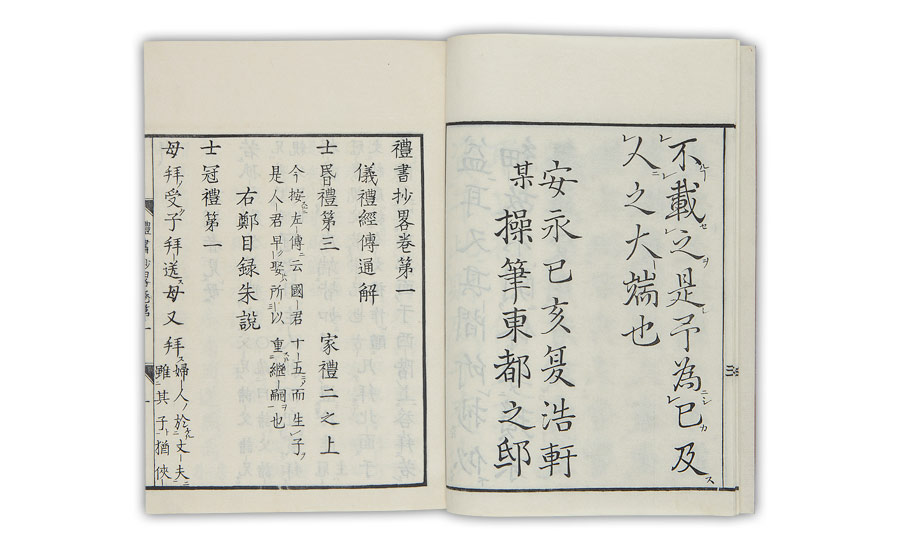 不載之是予為已及
人之大端也
安永己亥夏浩軒
某操筆東都之邸
禮書抄畧卷第一
儀禮經傳通解
士昬禮第三 家禮二之上
今按左傳云國君十五而生子
是人君早娶所以重繼嗣也
右鄭目録朱說
士冠禮第一
母拜受子拜送母又拜 婦人於丈夫
雖其子猶俠